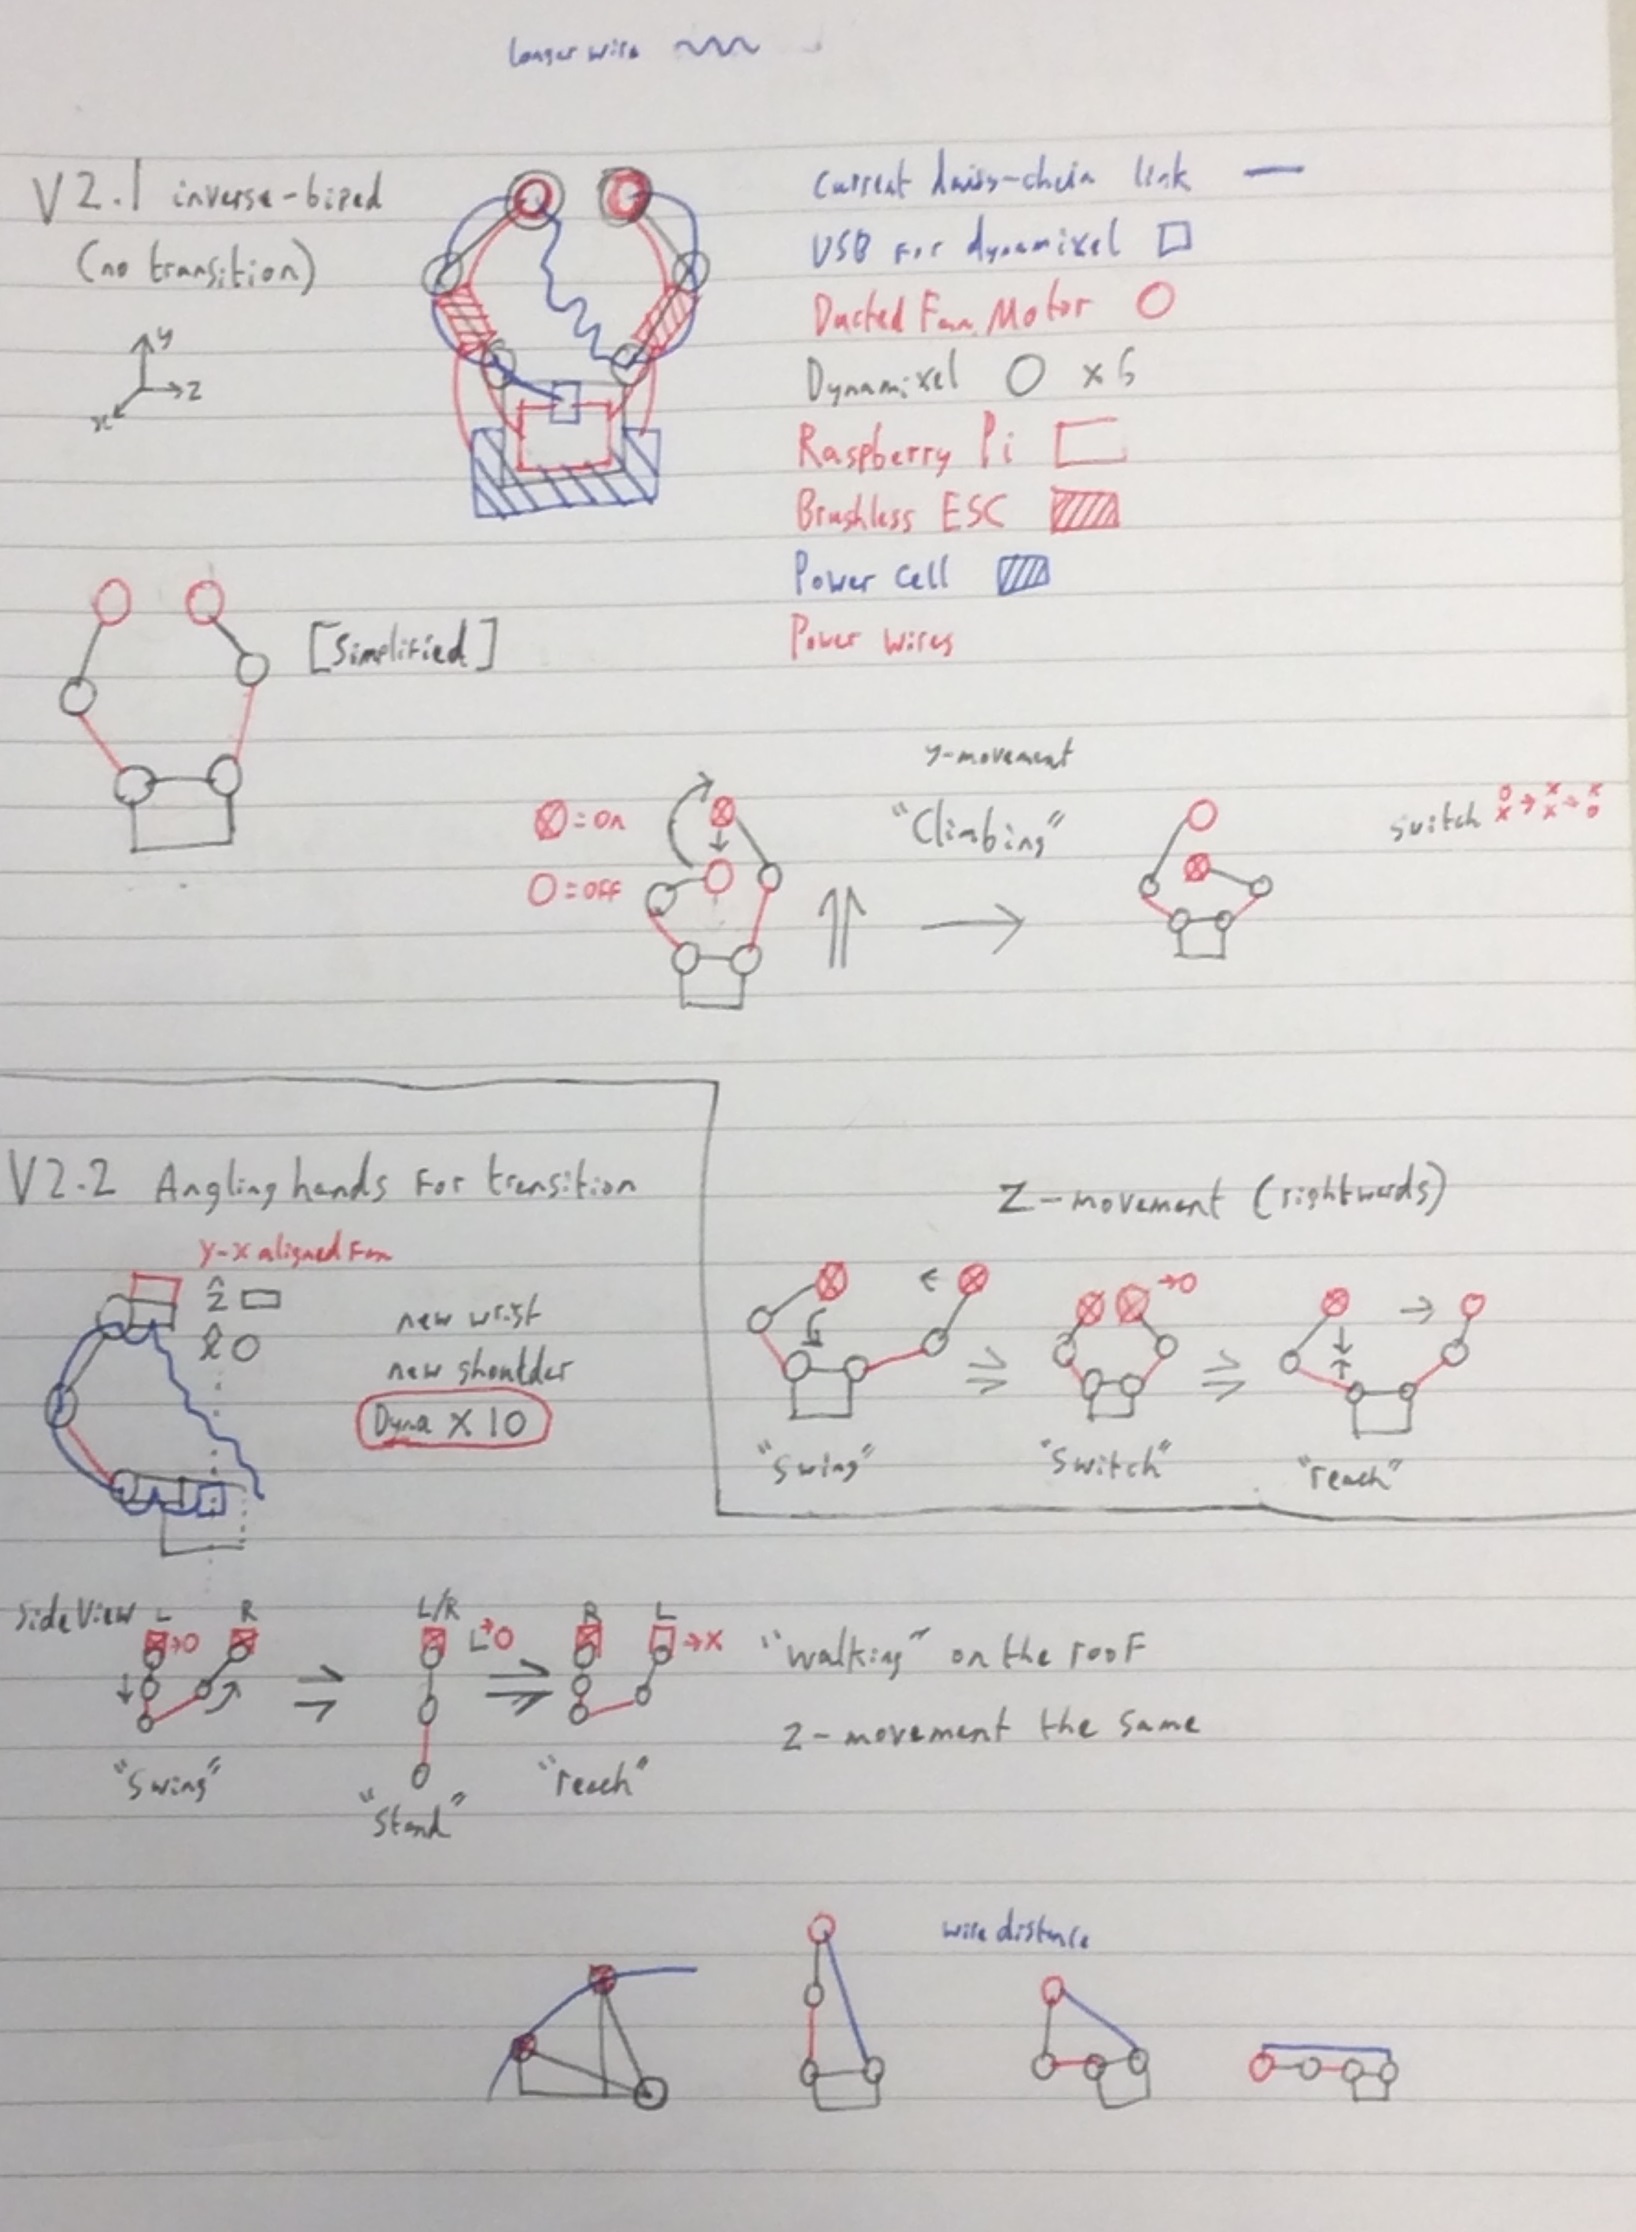 longer wire
V2.1 inverse-biped
(no transition)
y
z
x
Current daisy-chain link
USB for dynamixel
Ducted Fan Motor
Dynamixel O x6
Raspberry Pi
Brushless ESC
Power Cell
Power wires
[Simplified]
y-movement
"Climbing"
= On
O = OFF
switch
V2.2 Angling hands For transition
y-x aligned Fan
ẑ
x̂
new wrist
new shoulder
Dyna X 10
Z-movement (rightwards)
→O
"swing"
"Switch"
"reach"
Side View L R
→O
L/R
L→O
R L
→X
"walking" on the roof
Z-movement the same
"Swing"
"Stand"
"reach"
wire distance